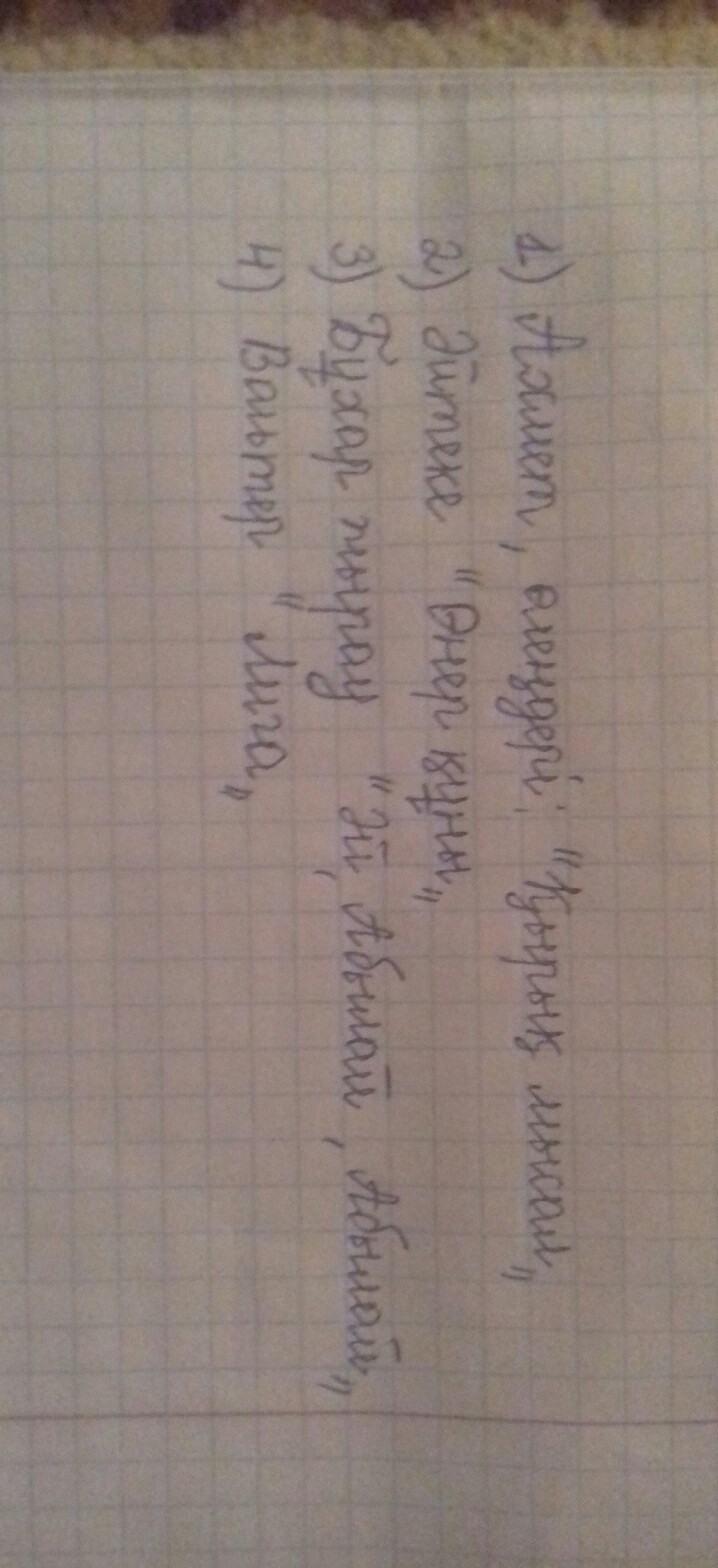 1) Ахмет, өлеңдері; "Қырық мысал"
2) Әйтеке "Өнер құны"
3) Бұхар жырау "Әй, Абылай, Абылай"
4) "Лига"